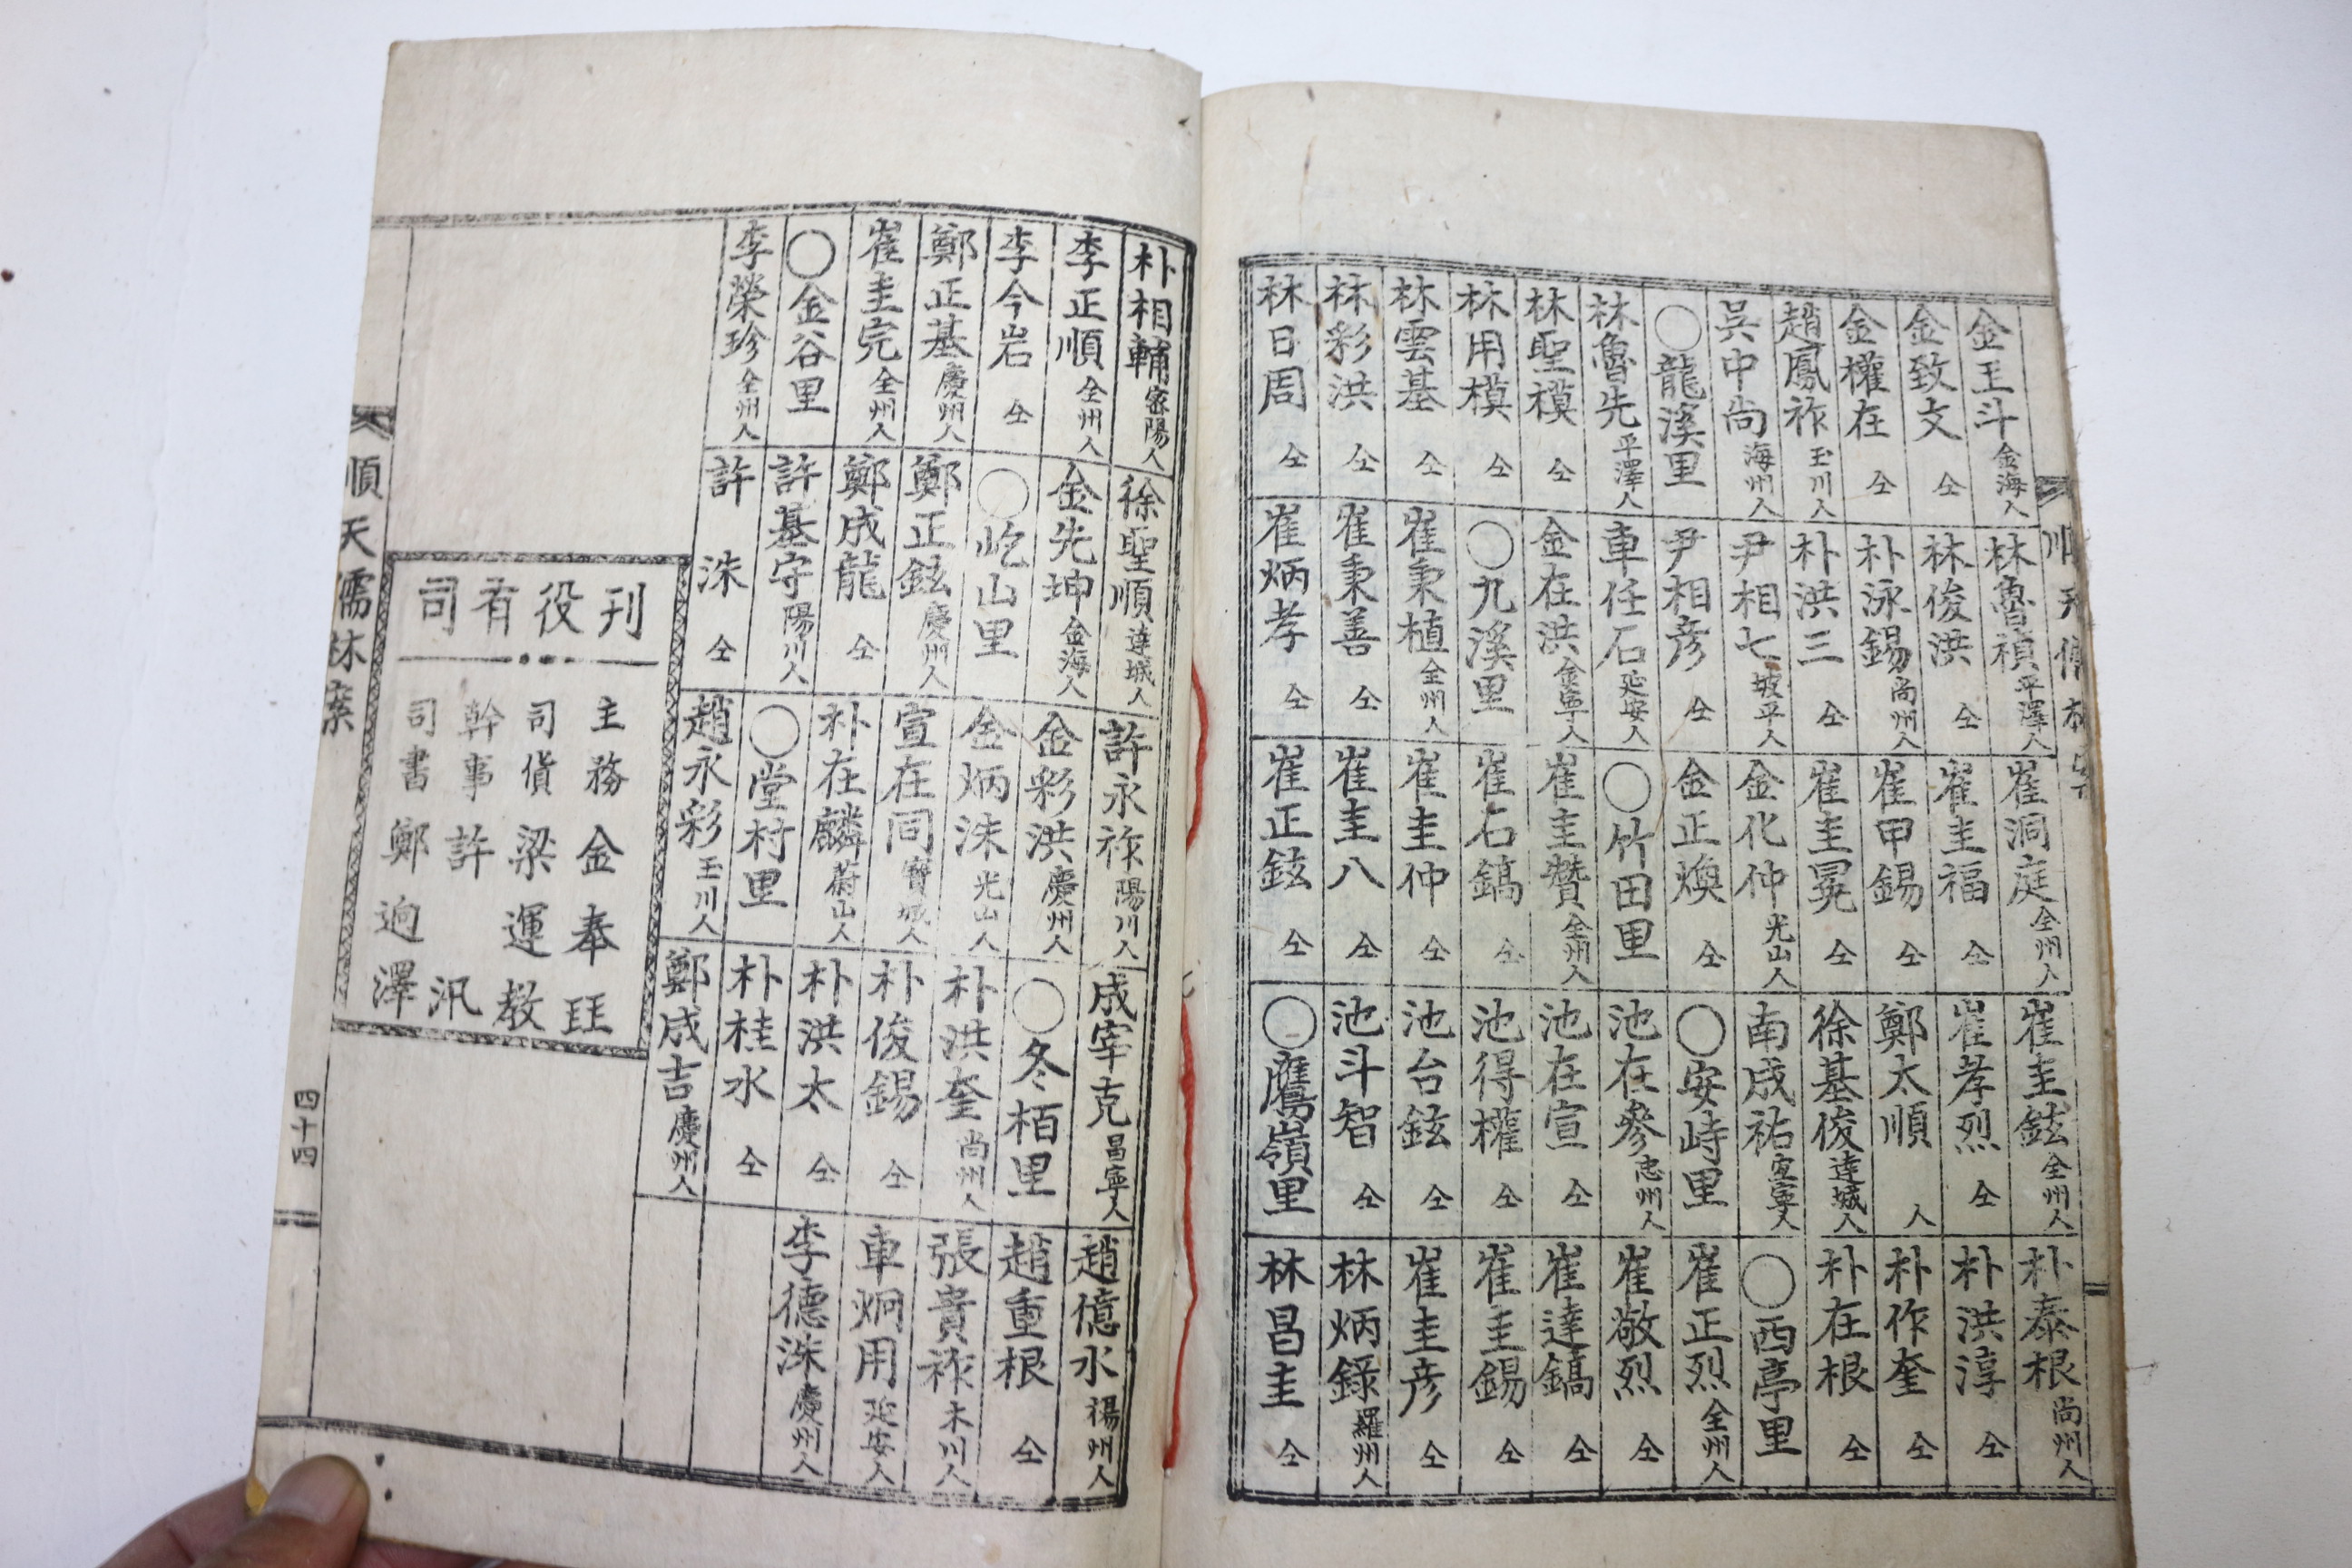 順天儒林案
金王斗 金海人
金致文 仝
金權在 仝
趙鳳祚 玉川人
吳中尚 海州人
○龍溪里
林魯先 平澤人
林聖模 仝
林用模 仝
林雲基 仝
林彩洪 仝
林日周 仝
林魯禎 平澤人
林俊洪 仝
朴泳錫 尚州人
朴洪三 仝
尹相七 坡平人
尹相彦 仝
車任石 延安人
金在洪 金寧人
○九溪里
崔秉植 全州人
崔秉善 仝
崔炳孝 仝
崔洞庭 全州人
崔圭福 仝
崔甲錫 仝
崔圭冕 仝
金化仲 光山人
金正煥 仝
○竹田里
崔圭贊 全州人
崔石鎬 仝
崔圭仲 仝
崔圭八 仝
崔正鉉 仝
崔圭鉉 全州人
崔孝烈 仝
鄭太順 人
徐基俊 達城人
南成祐 宜寧人
○安峙里
池在參 忠州人
池在宣 仝
池得權 仝
池台鉉 仝
池斗智 仝
○鷹嶺里
朴泰根 尚州人
朴洪淳 仝
朴作奎 仝
朴在根 仝
○西亭里
崔正烈 全州人
崔敬烈 仝
崔達鎬 仝
崔圭錫 仝
崔圭彦 仝
林炳錄 羅州人
林昌圭 仝
朴相輔 密陽人
李正順 全州人
李今岩 仝
鄭正基 慶州人
崔圭完 全州人
○金谷里
李榮珍 全州人
徐聖順 達城人
金先坤 金海人
○屹山里
鄭正鉉 慶州人
鄭成龍 仝
許基守 陽川人
許洙 仝
許永祿 陽川人
金彩洪 慶州人
金炳洙 光山人
宣在同 寶城人
朴在麟 蔚山人
○堂村里
趙永彩 玉川人
成宰克 昌寧人
○冬栢里
朴洪奎 尚州人
朴俊錫 仝
朴洪太 仝
朴桂水 仝
鄭成吉 慶州人
趙億水 楊州人
趙重根 仝
張貴祚 木川人
車炯用 延安人
李德洙 慶州人
刊役有司
主務 金奉珏
司貨 梁運敎
幹事 許汛
司書 鄭逈澤
順天儒林案
四十四